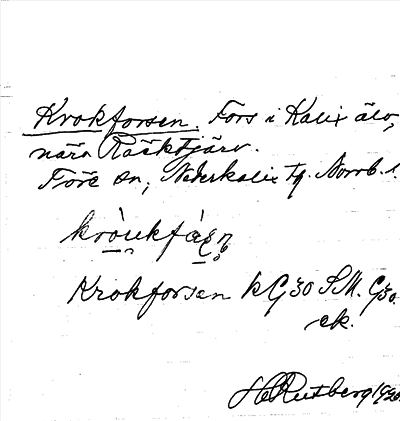 Krokforsen. Fors i Kalix älv,
nära Räktjärv.
Töre sn, Nederkalix tg. Norrb. l.
Krokforsen kG30 S.M. G30.
ek.
H Rutberg 1930